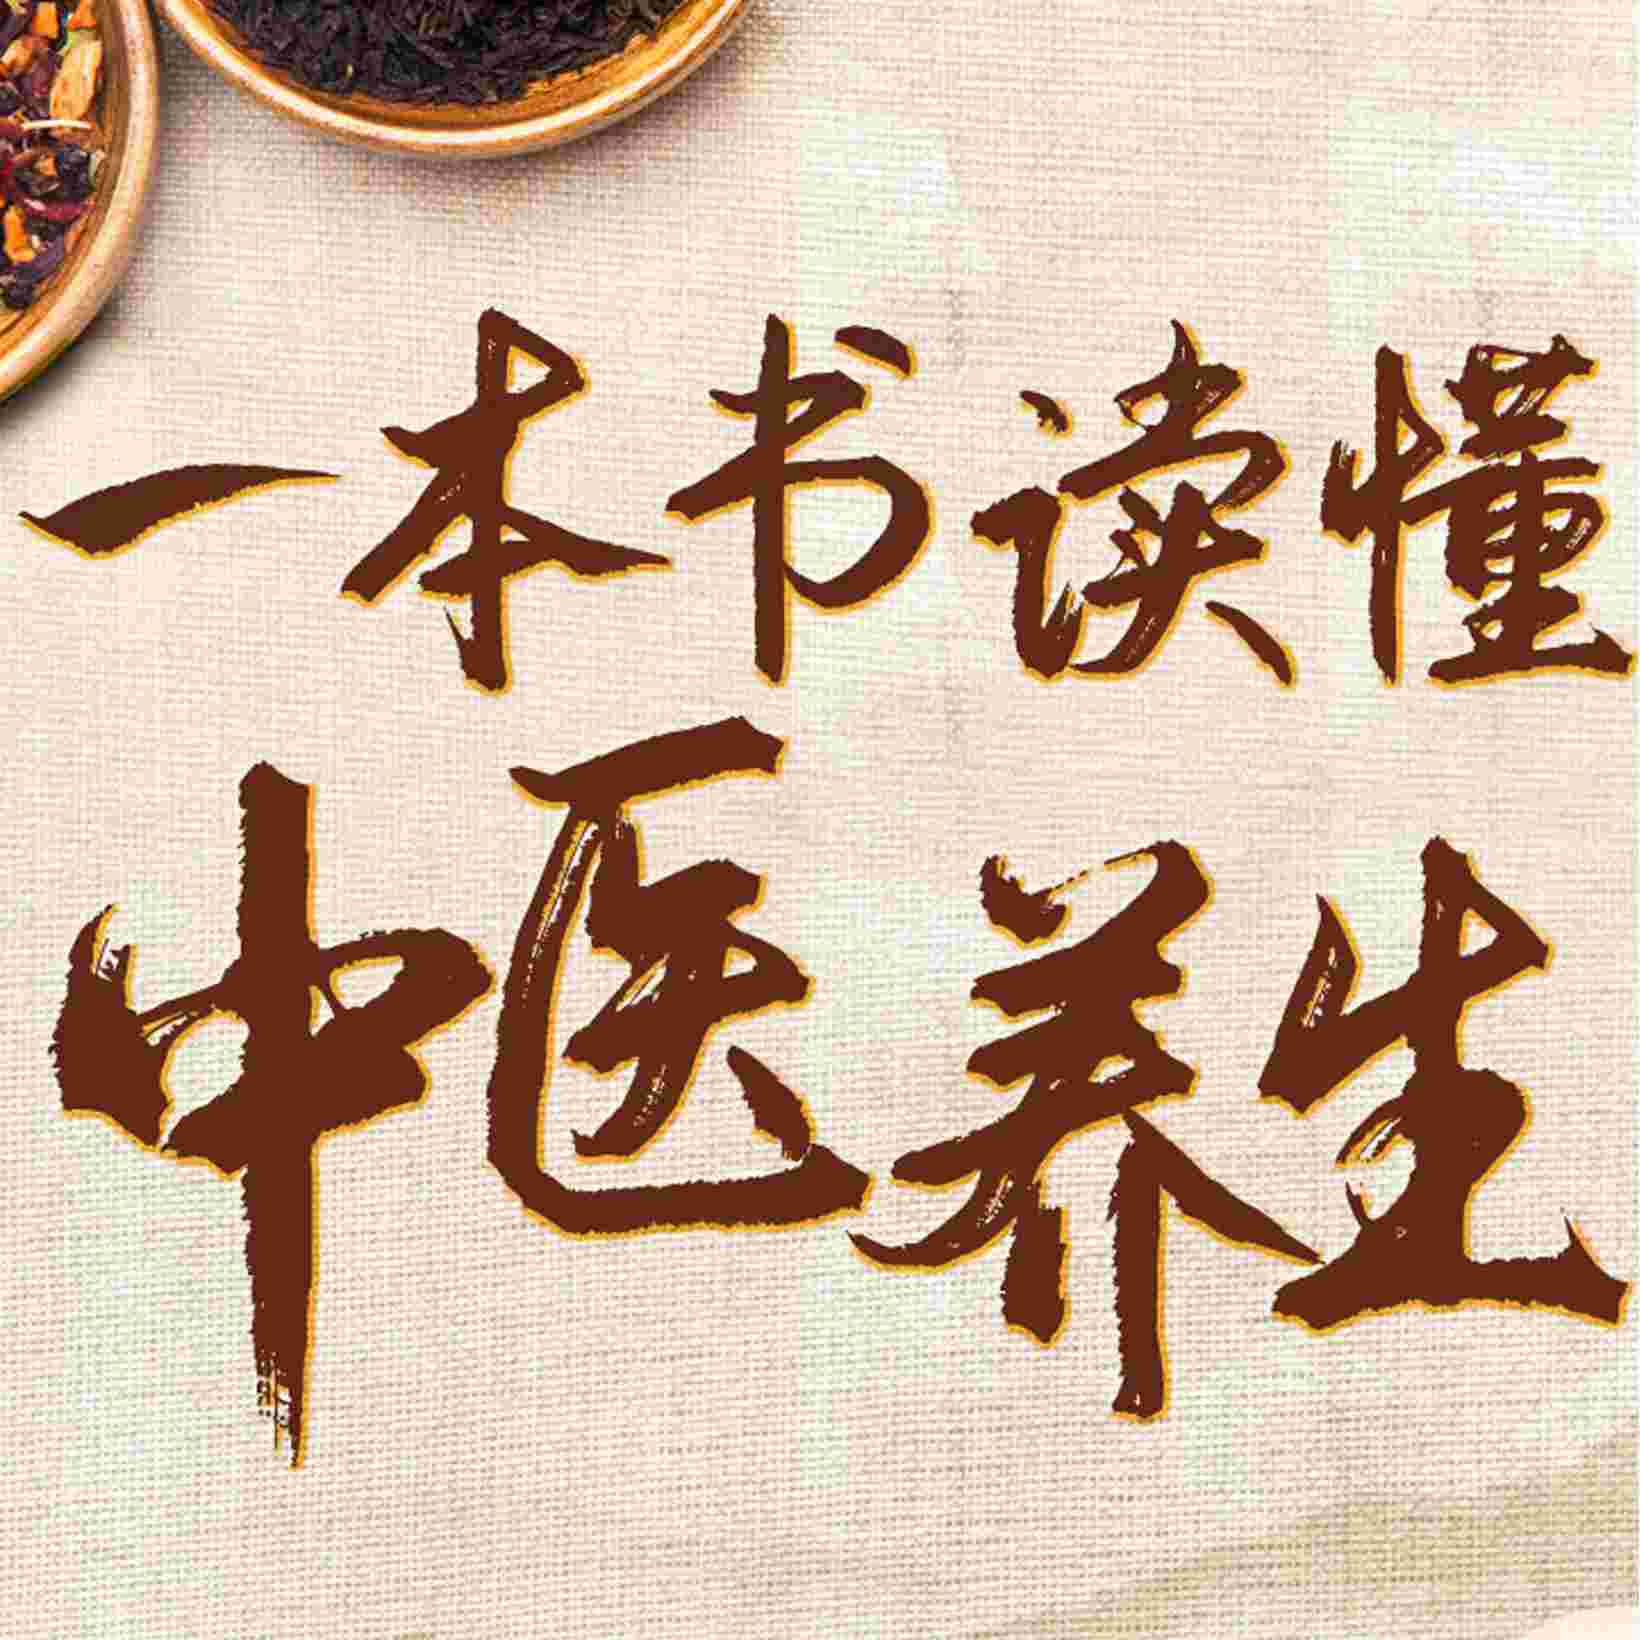 一本书读懂
中医养生